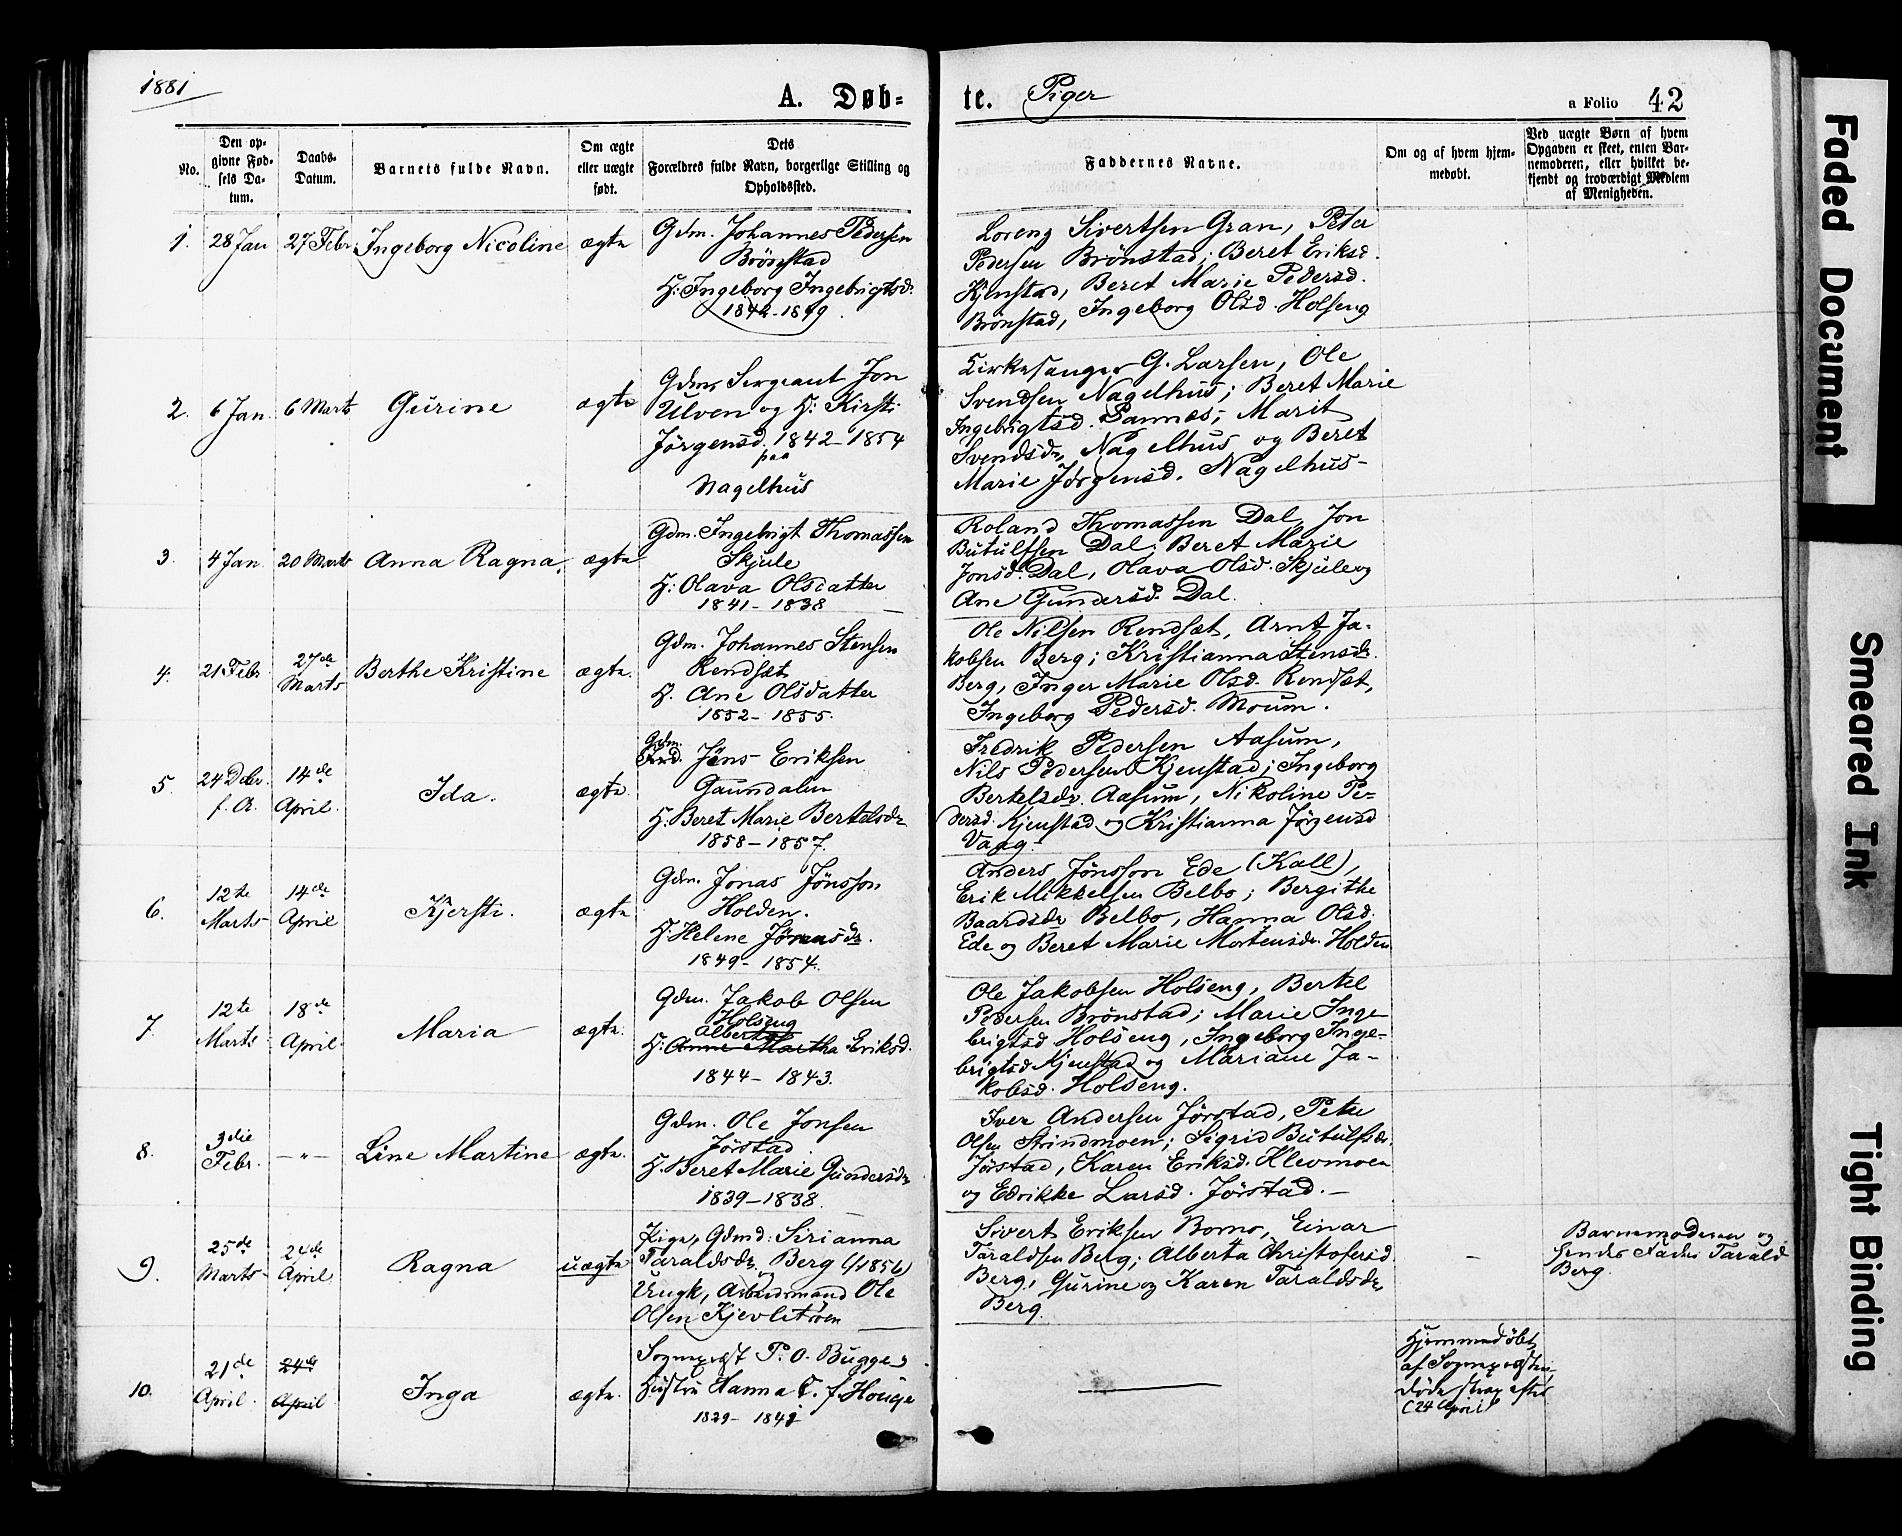 1881
A. Døb=
te. Piger
a Folio 42
No.
Den op-
givne Fød-
sels Da-
tum.
Daabs-
Datum.
Barnets fulde Navn.
Om ægte
eller uægte
født.
Dets
Forældres fulde Navn, borgerlige Stilling og
Opholdssted.
Faddernes Navne.
Om og af hvem hjem-
medøbt.
Ved uægte Børn af hvem
Opgaven er skeet, enten Bar-
nemoderen, eller hvilket be-
kjendt og troværdigt Medlem
af Menigheden.
1. 28 Jan 27 Febr Ingeborg Nicoline ægte
Gdm. Johannes Pedersen
Brönstad
H: Ingeborg Ingebrigtsd.
Lorens Sivertsen Gran, Peter
Pedersen Brönstad; Beret Eriksd.
Kjenstad, Beret Marie Pedersd.
Brönstad, Ingeborg Olsd. Holseng
2. 6 Jan 6 Marts Gurine ægte
Gdm, Sergeant Jon
Ulven og H: Kirsti
Jörgensd. 1842-1854
paa
Nagelhus
Kirkesanger G. Larsen, Ole
Svendsen Nagelhus; Beret Marie
Ingebrigtsd. Sannæs; Marit
Svendsdr, Nagelhus og Beret
Marie Jörgensd. Nagelhus-
3. 4 Jan 20 Marts Anna Ragna, ægte
Gdm. Ingebrigt Thomassen
Skjule
H: Olava Olsdatter
1841-1838
Roland Thomassen Dal, Jon
Butulfsen Dal; Beret Marie
Jonsd: Dal, Olava Olsd. Skjule og
Ane Gundersd. Dal.
4. 21 Febr 27de
Marts Berthe Kristine ægte.
Gdm. Johannes Stensen
Rendsæt
H. Ane Olsdatter
1852-1855.
Ole Nilsen Rendsæt, Arnt Ja-
kobsen Berg; Kristianna Stensdr.
Berg, Inger Marie Olsd. Rendsæt,
Ingeborg Pedersd. Moum.
5. 24 Debr.
f. A. 14de
April. Ida. ægte.
Gdm.
Jöns Eriksen
Gaundalen
H: Beret Marie Bertelsdr
1858-1857.
Fredrik Pedersen Aasum,
Nils Pedersen Kjenstad; Ingeborg
Bertelsdr. Aasum, Nikoline Pe=
dersd. Kjenstad og Kristianna Jörgensd
6. 12te
Marts 14de
April Kjersti. ægte
Gdm. Jonas Jönsson
Holden.
H: Helene Jönsdr.
1849-1854.
Anders Jönsson Ede (Kall),
Erik Mikkelsen Belbo; Bergithe
Baardsdr Belbo, Hanna Olsd.
Ede og Beret Marie Mortensdr. Holden
7. 12te
Marts 18de
April. Maria ægte.
Gdm. Jakob Olsen
Holseng
Alberta
H: Anne Martha Eriksd.
1844-1843.
Ole Jakobsen Holseng, Bertel
Pedersen Brönstad; Marie Inge-
brigtsd Holseng, Ingeborg Inge-
brigtsd Kjenstad og Mariane Ja-
kobsd. Holseng.
8. 3die
Febr. -"- Line Martine ægte.
Gdm. Ole Jonsen
Jörstad
H. Beret Marie Gundersdr
1839-1838.
Iver Andersen Jörstad, Peter
Olsen Strindmoen; Sigrid Butulfsdr.
Jörstad, Karen Eriksd. Klevmoen
og Edrikke Larsd. Jörstad.-
9. 25de
Marts 24de
April Ragna uægte
Pige, Gdmd: Sirianna
Taraldsdr. Berg (1856)
Ungk, Arbeidsmand Ole
Olsen
Sivert Eriksen Bomo, Einar
Taraldsen Berg; Alberta Christofersd.
Berg, Gurine og Karen Taraldsdr
Berg.
Barnemoderen og
hendes Fader Tarald
Berg.
10. 21de
April. 24de
April Inga ægte.
Sognepræst P. O. Bugge og
Hustru Hanna C. f. Houge
Hjemmedöbt
af Sognepræsten
döde strax efter
(24 April
Faded Document
Smeared Ink
Tight Binding